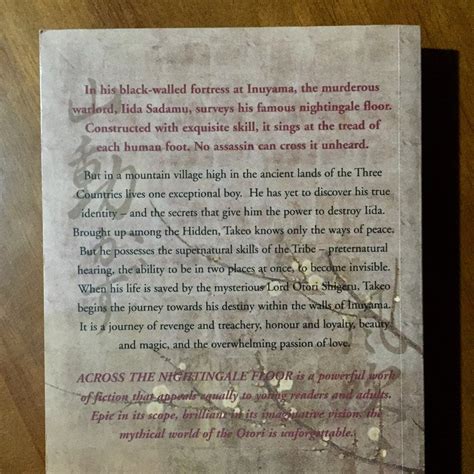 In his black-walled fortress at Inuyama, the murderous
warlord, Iida Sadamu, surveys his famous nightingale floor.
Constructed with exquisite skill, it sings at the tread of
each human foot. No assassin can cross it unheard.
But in a mountain village high in the ancient lands of the Three
Countries lives one exceptional boy. He has yet to discover his true
identity – and the secrets that give him the power to destroy Iida.
Brought up among the Hidden, Takeo knows only the ways of peace.
But he possesses the supernatural skills of the Tribe – preternatural
hearing, the ability to be in two places at once, to become invisible.
When his life is saved by the mysterious Lord Otori Shigeru, Takeo
begins the journey towards his destiny within the walls of Inuyama.
It is a journey of revenge and treachery, honour and loyalty, beauty
and magic, and the overwhelming passion of love.
ACROSS THE NIGHTINGALE FLOOR is a powerful work
of fiction that appeals equally to young readers and adults.
Epic in its scope, brilliant in its imaginative vision, the
mythical world of the Otori is unforgettable.